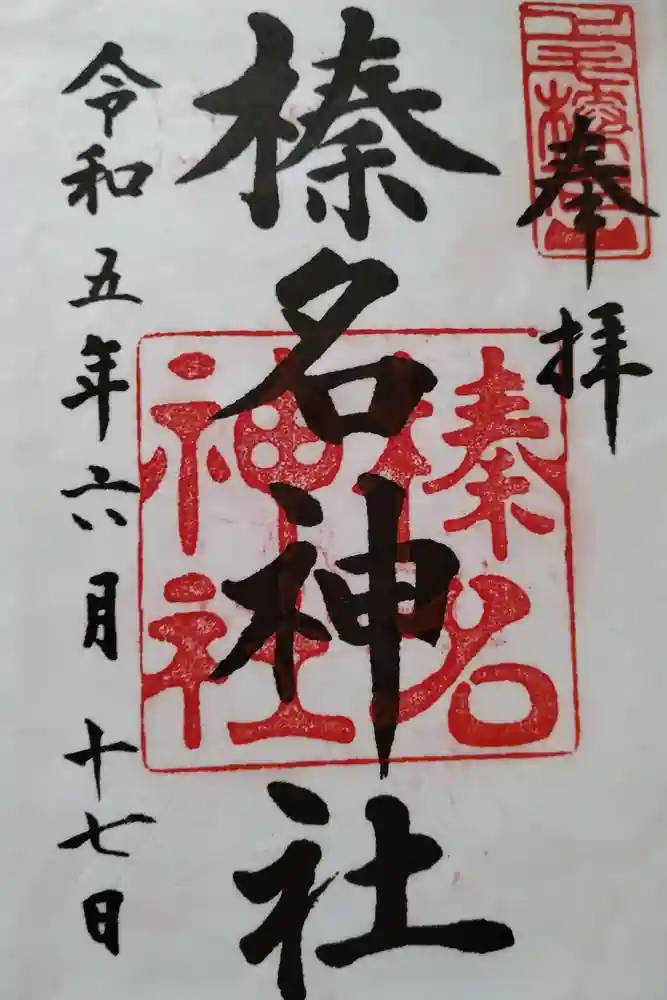 奉拝
榛名神社
榛名
神社
令和五年六月十七日